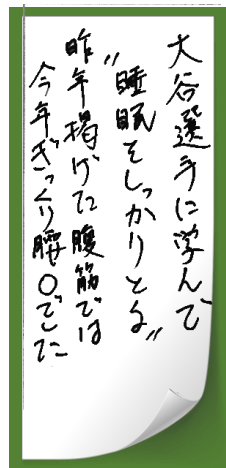 大谷選手に学んで
"睡眠をしっかりとる"
昨年掲げた腹筋では
今年ぎっくり腰〇でした